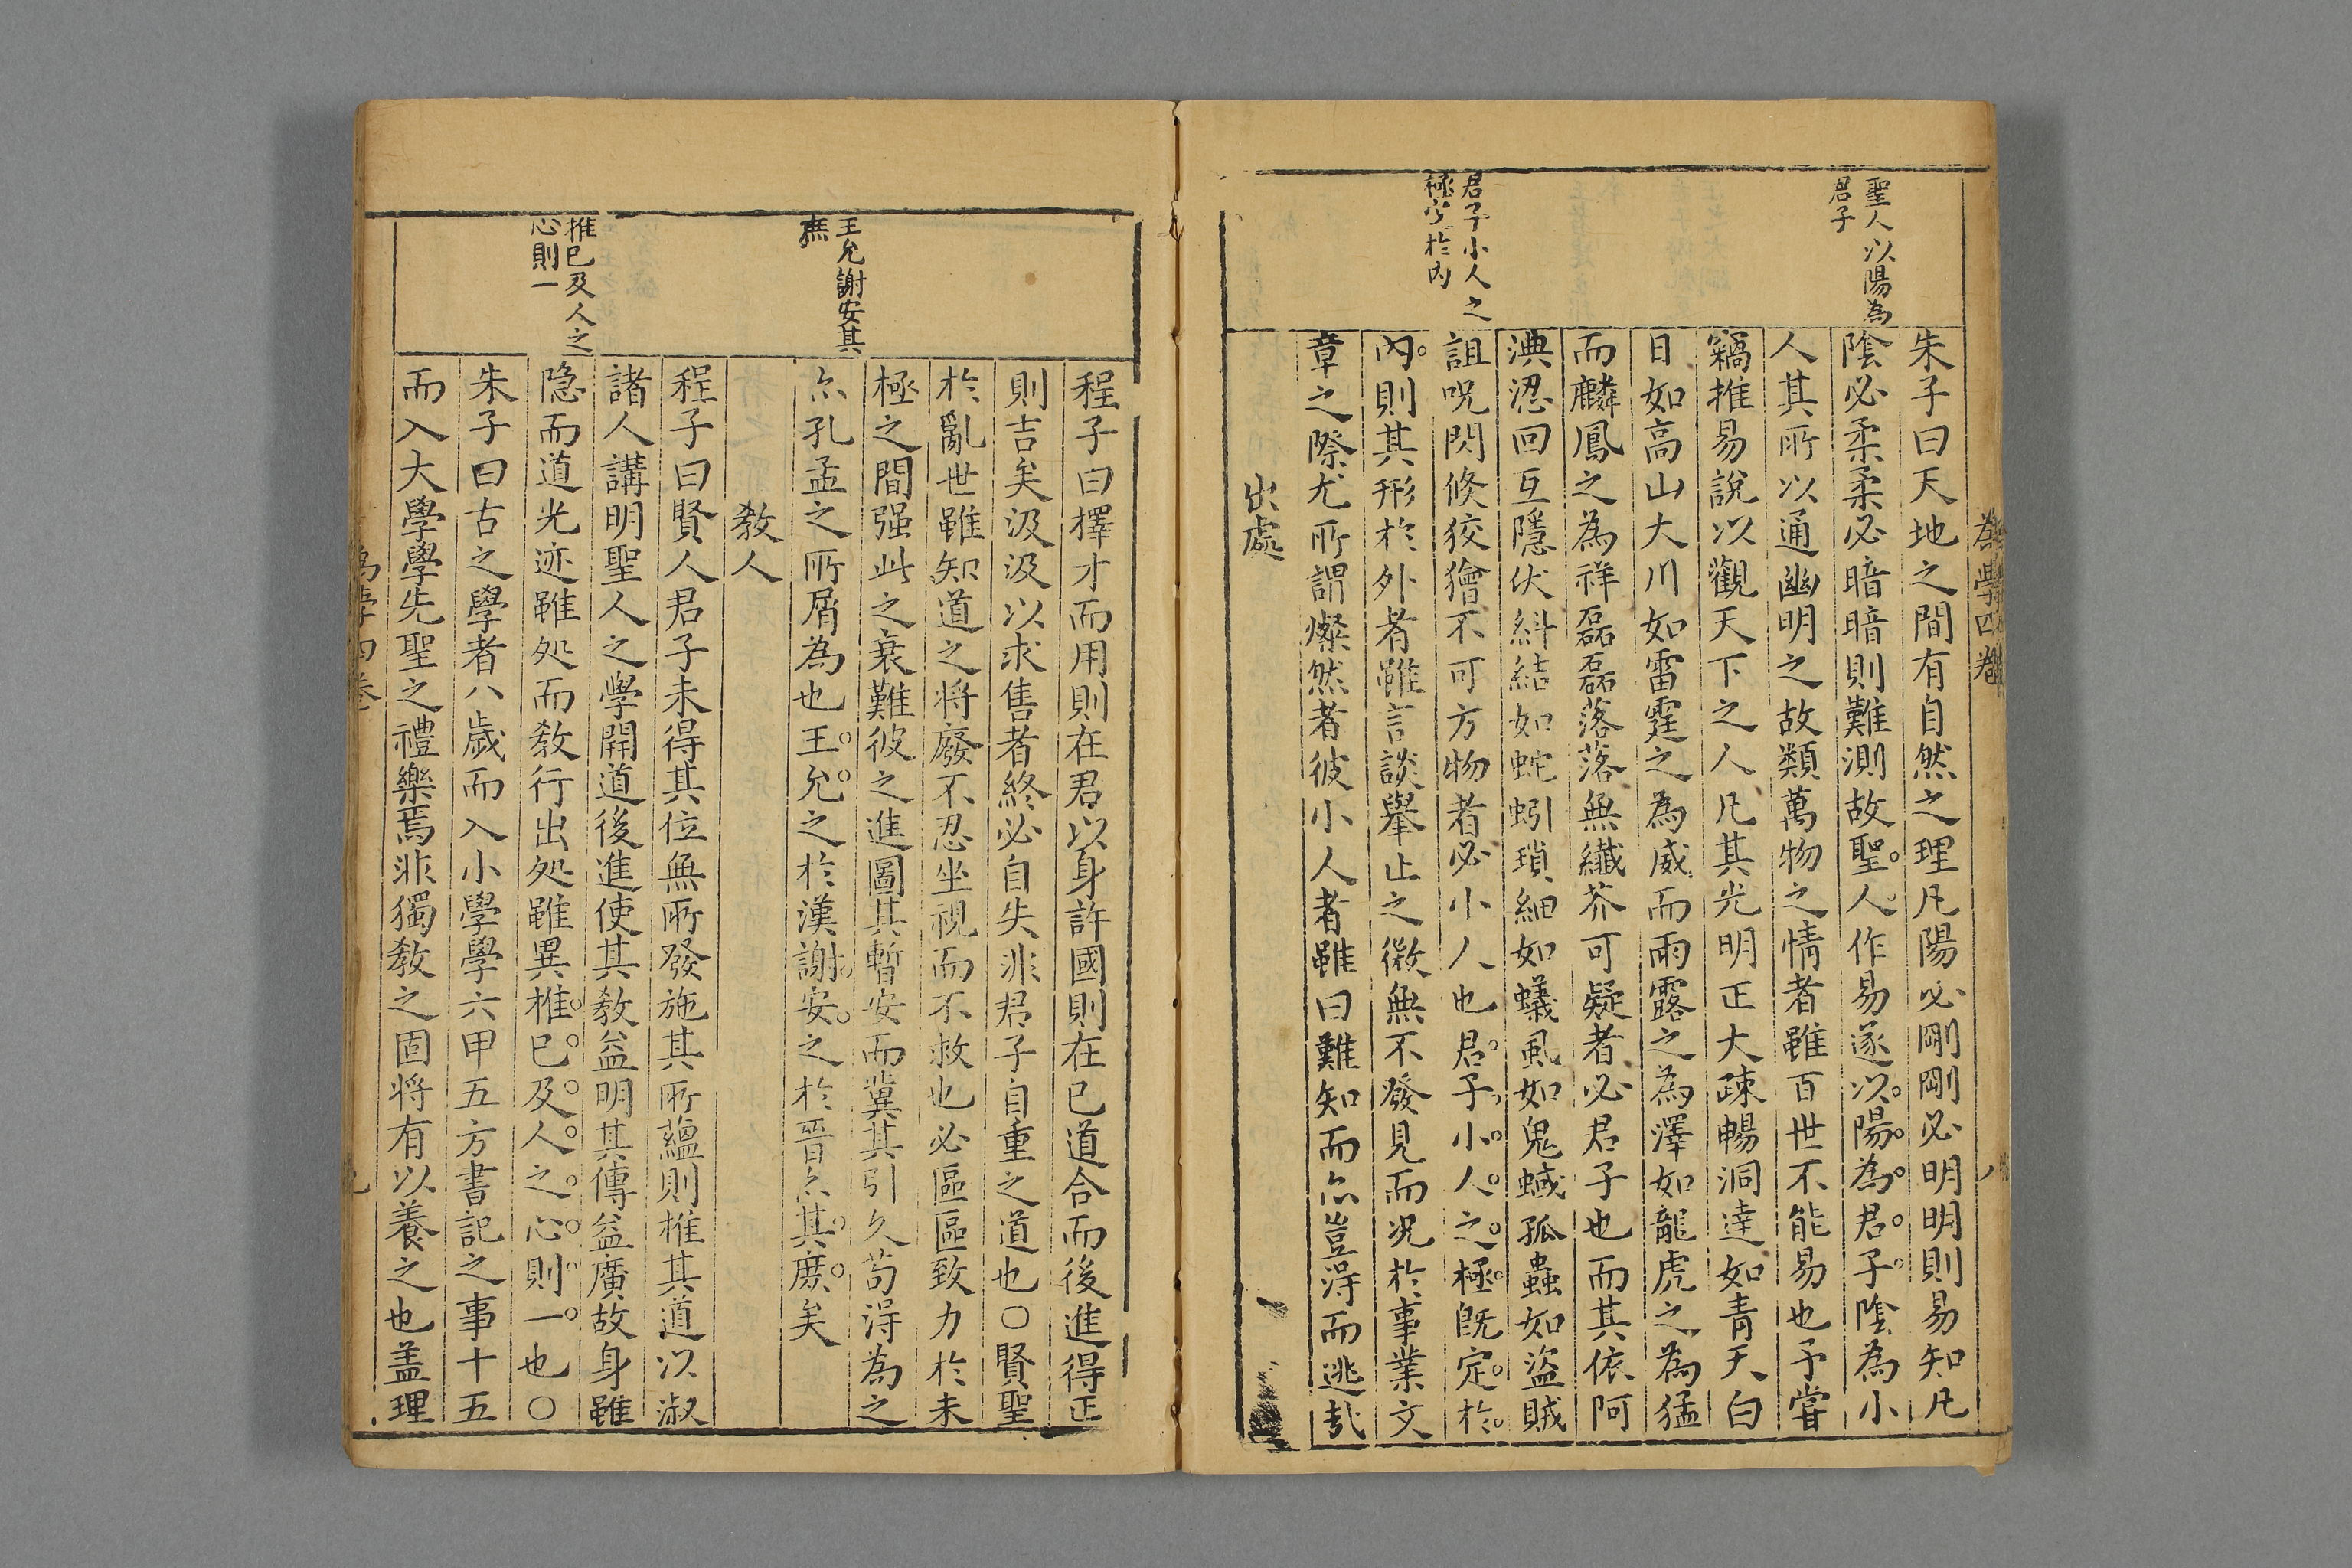 為學四卷
八
聖人以陽為
君子
君子小人之
極定於內
朱子曰天地之間有自然之理凡陽必剛剛必明明則易知凡
陰必柔柔必暗暗則難測故聖人作易遂以陽為君子陰為小
人其所以通幽明之故類萬物之情者雖百世不能易也予嘗
竊推易說以觀天下之人凡其光明正大疎暢洞達如青天白
日如高山大川如雷霆之為威而雨露之為澤如龍虎之為猛
而麟鳳之為祥磊磊落落無纖芥可疑者必君子也而其依阿
淟涊回互隱伏糾結如蛇蚓瑣細如蟻虱如鬼蜮孤蠱如盜賊
詛呪閃倏狡獪不可方物者必小人也君子小人之極旣定於
內則其形於外者雖言談舉止之微無不發見而況於事業文
章之際尤所謂燦然者彼小人者雖曰難知而亦豈淂而逃㢤
出處
王允謝安其
庶
推已及人之
心則一
程子曰擇才而用則在君以身許國則在已道合而後進得正
則吉矣汲汲以求售者終必自失非君子自重之道也○賢聖
於亂世雖知道之將廢不忍坐視而不救也必區區致力於未
極之間强此之衰難彼之進圖其暫安而兾其引久苟淂為之
亦孔孟之所屑為也王允之於漢謝安之於晉亦其庶矣
教人
程子曰賢人君子未得其位無所發施其所蘊則推其道以淑
諸人講明聖人之學開道後進使其教益明其傳益廣故身雖
隐而道光迹雖処而教行出処雖異推已及人之心則一也○
朱子曰古之學者八歲而入小學學六甲五方書記之事十五
而入大學學先聖之禮樂焉非獨教之固將有以養之也盖理
為學四卷
九